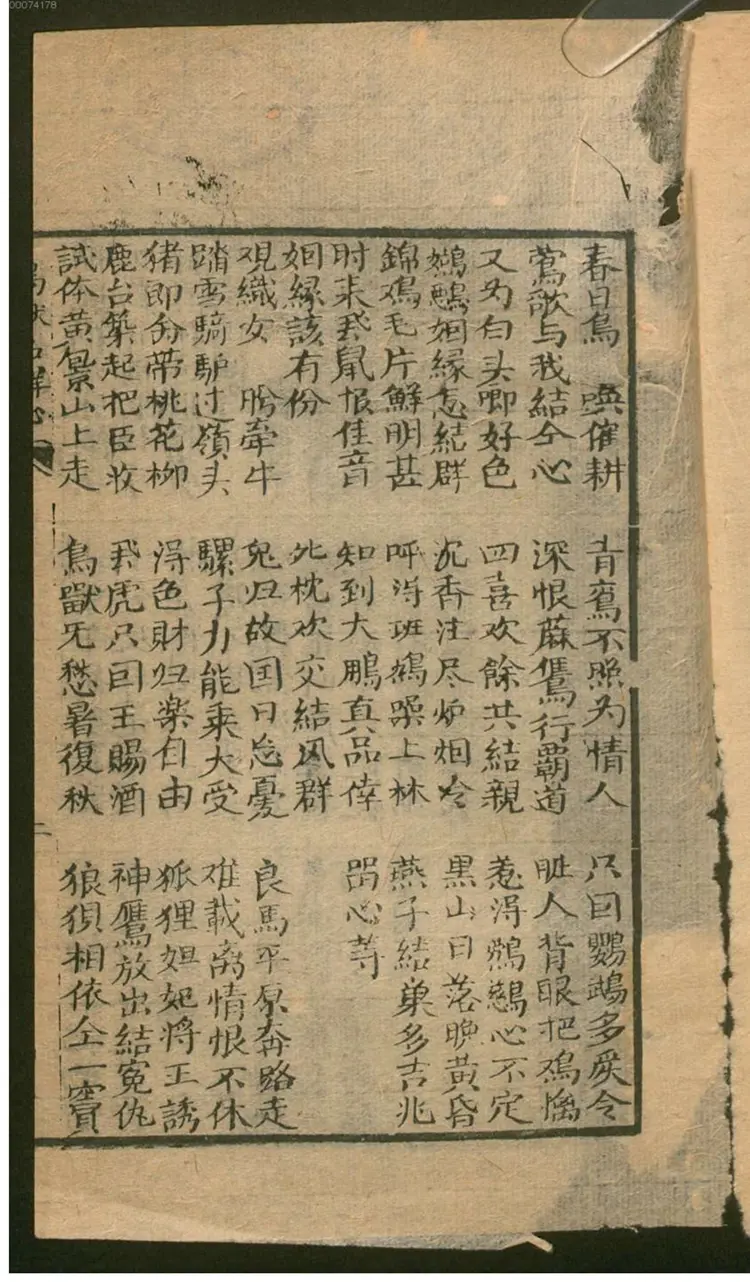 春日鳥　喚催耕　青鸞不照为情人　只因鸚鵡多戾令
莺歌与我結仝心　深恨蔴鷹行覇道　人背眼把
又为白头啣好色　四喜欢餘共結親　惹淂心不定
姻緣怎結群　沉香注尽炉烟冷　黒山日落晚黃昏
錦鳮毛片鮮明甚　呼淂班鳩噪上林　燕子結巢多吉兆
时来飛鼠恨佳音　知到大鵬真品倖　畱心等
姻緣該有份　此枕欢交結凤群
观織女　盼牽牛　兔归故国日忩憂　良馬平原奔路走
踏雪騎驴过嶺头　騾子力能乘大受　难載离情恨不休
猪即分带桃花柳　淂色財归楽自由　狐狸妲妃将王誘
鹿台築起把臣收　飛虎只因王賜酒　神鷹放出結冤仇
試体黃景山上走　鳥獸旡愁暑復秋　狼狽相依仝一竇
解心　二
00074178